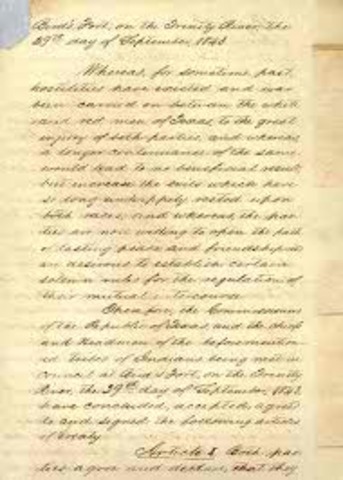 Bird's Fort, on the Trinity River, the
29th day of September, 1843.
Whereas, for sometime past,
hostilities have existed and war
been carried on between the white
and red men of Texas, to the great
injury of both parties, and whereas,
a longer continuance of the same
would lead to no beneficial result,
but increase the evils which have
so long unhappily rested upon
both races, and whereas, the par-
ties are now willing to open the path
of lasting peace and friendship and
are desirous to establish certain
solemn rules for the regulation of
their mutual intercourse
Therefore, the Commissioners
of the Republic of Texas, and the chiefs
and Headmen of the beforemention-
ed tribes of Indians being met in
council at Bird's Fort, on the Trinity
River, the 29th day of September, 1843,
have concluded, accepted, agreed
to and signed the following articles
of treaty
Article I Both par-
ties agree and declare, that they